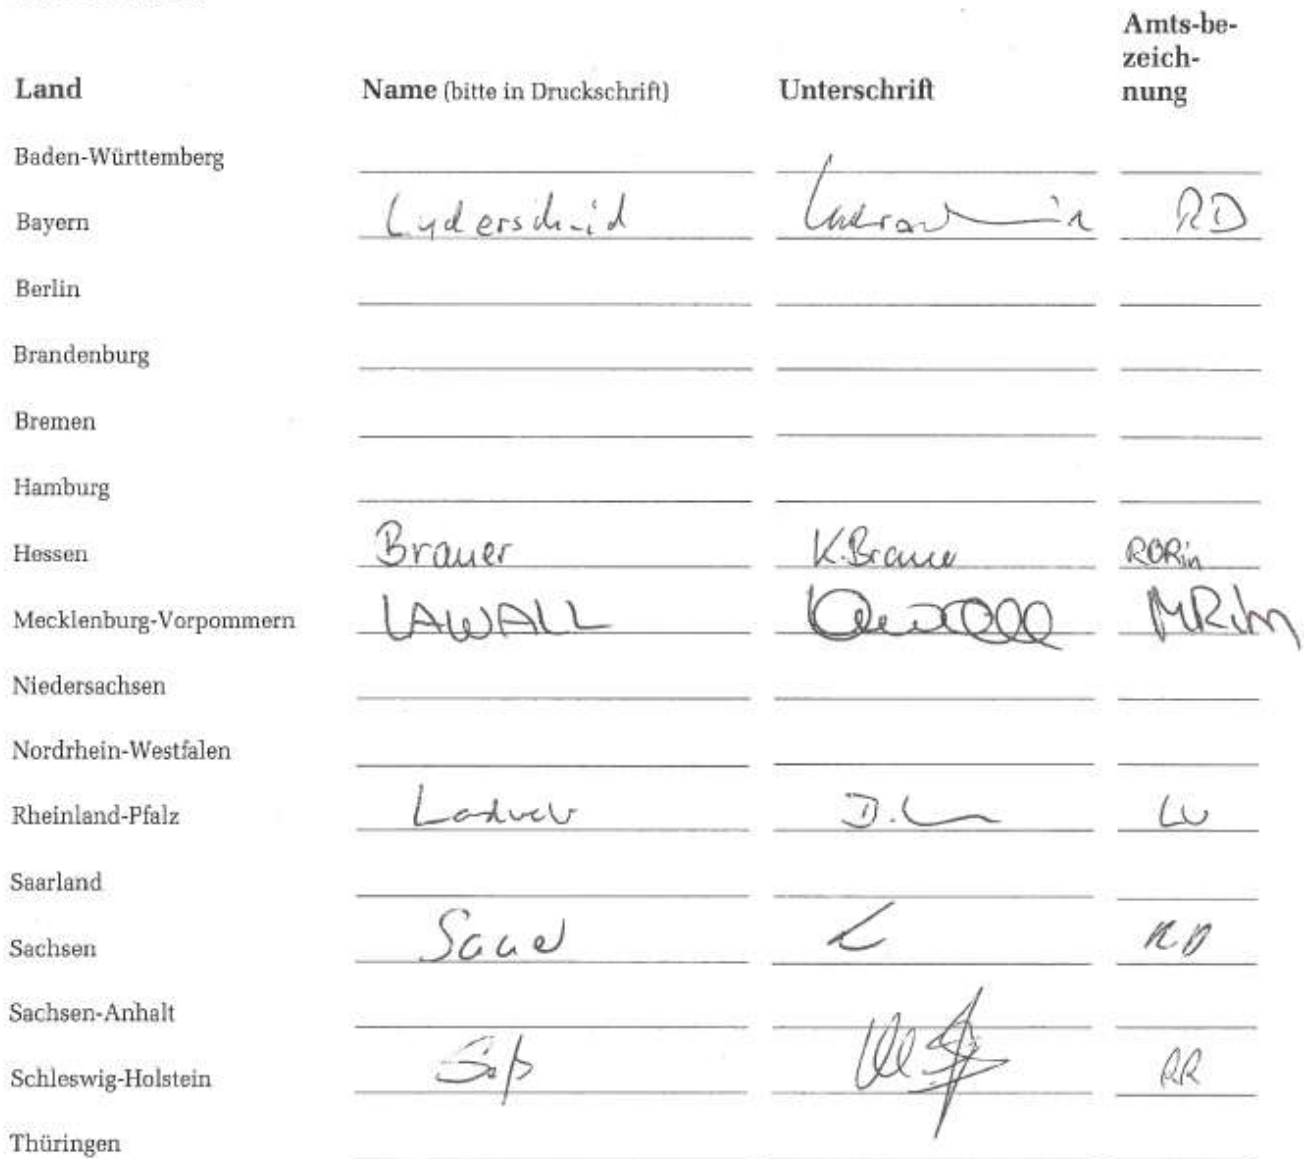 Amts-be-
zeich-
Land Name (bitte in Druckschrift) Unterschrift nung
Baden-Württemberg
Bayern Lyderscheid RD
Berlin
Brandenburg
Bremen
Hamburg
Hessen Brauer K. Brauer RORin
Mecklenburg-Vorpommern LAWALL Lawall MRin
Niedersachsen
Nordrhein-Westfalen
Rheinland-Pfalz
Saarland
Sachsen RD
Sachsen-Anhalt
Schleswig-Holstein RR
Thüringen